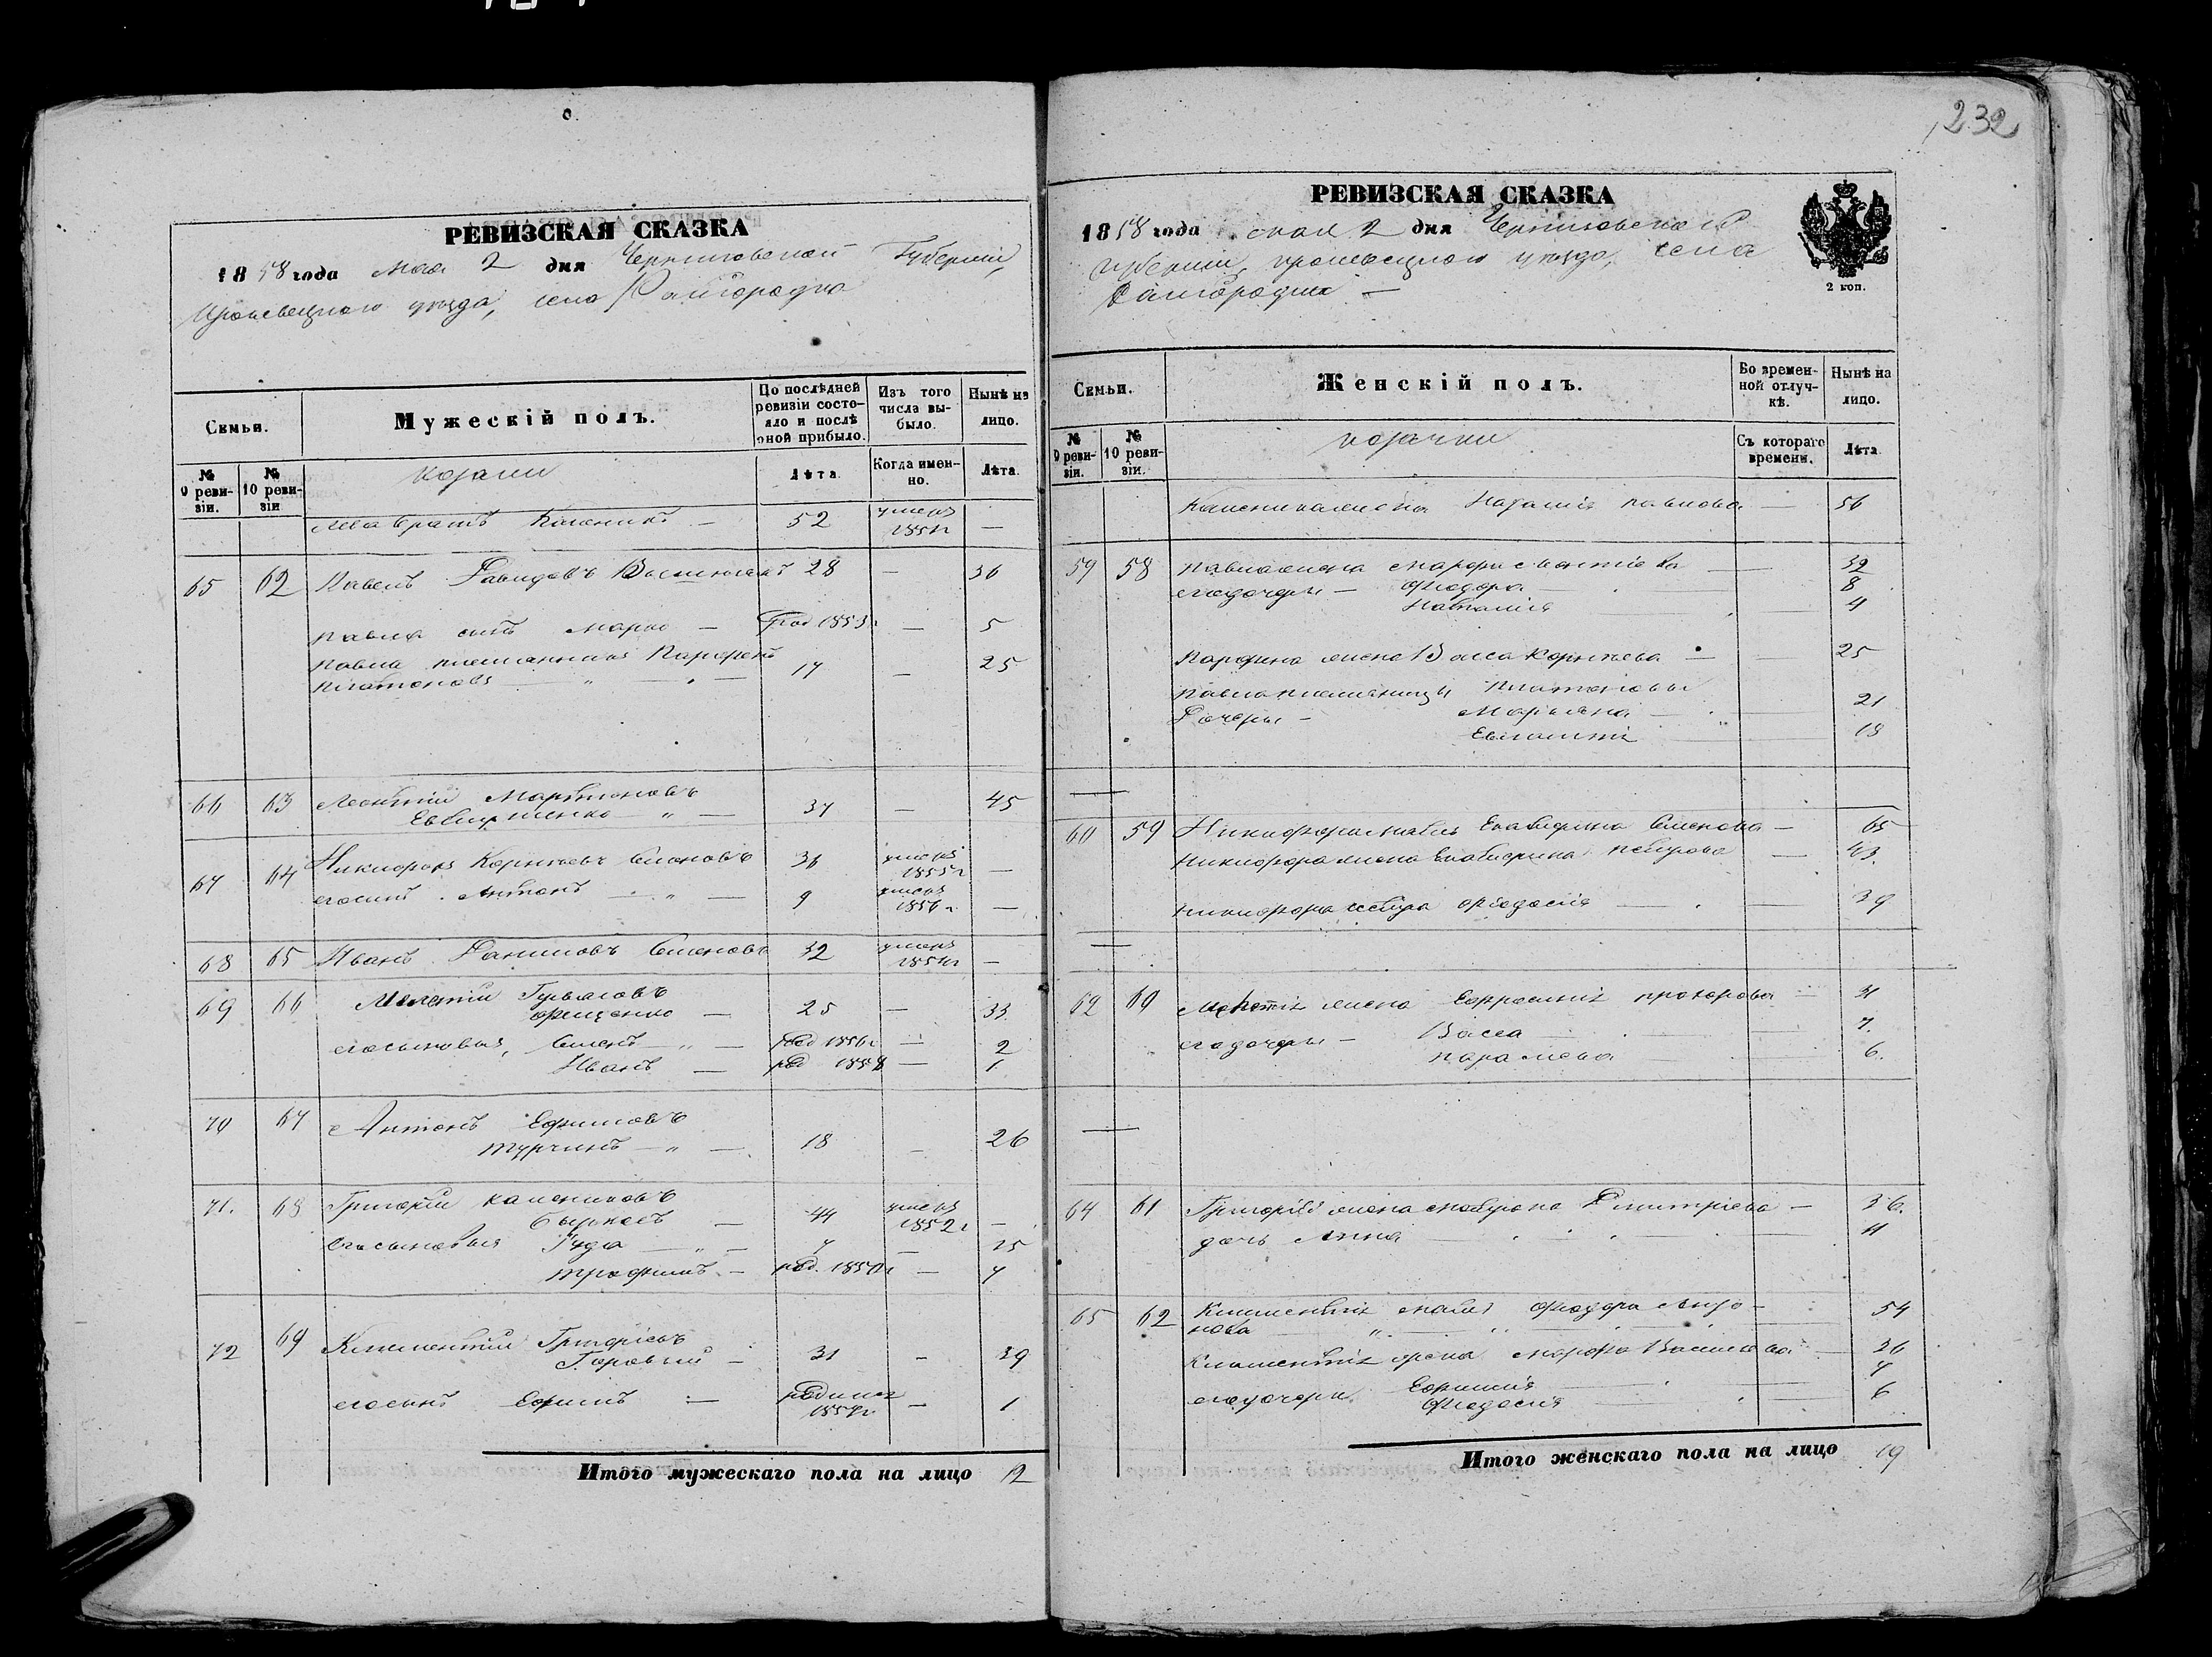 232
РЕВИЗСКАЯ СКАЗКА
1858 года мая 2 дня Черниговской Губерніи,
Кролевецкаго уезда, села Райгородка
Семьи.
Мужескій полъ.
По послѣдней ревизіи состояло и послѣ оной прибыло.
Изъ того числа выбыло.
Нынѣ на лицо.
№ 9 ревизіи.
№ 10 ревизіи
козаки
Лѣта
Когда именно.
Лѣта.
братъ 52 умеръ —
65 62 Павелъ Давидовъ 28 — 36
Павла сынъ Марко — род 1853 — 5
Павла племянникъ Парфенъ
Платоновъ 17 — 25
66 63 Леонтій Мартыновъ
37 — 45
67 64 Никифоръ Корнѣевъ Семеновъ 36 умеръ 1855 г —
его сынъ Антонъ — 9 умеръ 1856 г. —
68 65 Иванъ Даниловъ Семеновъ 32 умеръ —
69 66 Мелетій
Фещенко — 25 — 33
его сыновья, Семенъ — род 1856 г — 2
Иванъ — род 1858 — 1
70 67 Антонъ Ефимовъ
Турчинъ — 18 — 26
71. 68 Григорій
44 умеръ 1852 г —
его сыновья Гуда — 7 — 15
Трофимъ — род. — 7
72 69 Климентій Григорьевъ
31 — 39
его сынъ Ефимъ — — 1
Итого мужескаго пола на лицо 12
РЕВИЗСКАЯ СКАЗКА
1858 года мая 2 дня Черниговской
Губерніи, Кролевецкаго уезда, села
Райгородка —
2 коп.
Семьи.
Женскій полъ.
Во временной отлучкѣ.
Нынѣ на лицо.
№ 9 ревизіи.
№ 10 ревизіи.
козачки
Съ котораго времени.
Лѣта
жена Наталія Павлова — 56
59 58 Павла жена Марфа — 32
его дочери — Феодора — 8
Наталія — 4
Парфена жена Васса Корнѣева — 25
Павла племянницы Платоновы
Дочери — Марьяна — 21
—
60 59 Никифора мать Екатерина Семенова — 65
Никифора жена Екатерина Петрова — 43.
Никифора сестра Феодосія — 39
—
62 60 Мелетія жена Ефросинія Прохорова — 31
его дочери — Васса — 7.
Параскева 6.
—
64 61 Григорія жена Матрона Дмитріева — 36.
дочь Анна — 11
65 62 Климентія мать Феодора — 54
Климентія жена Марфа Васильева — 36
его дочери Ефимія — 7
Феодосія — 6
Итого женскаго пола на лицо 19